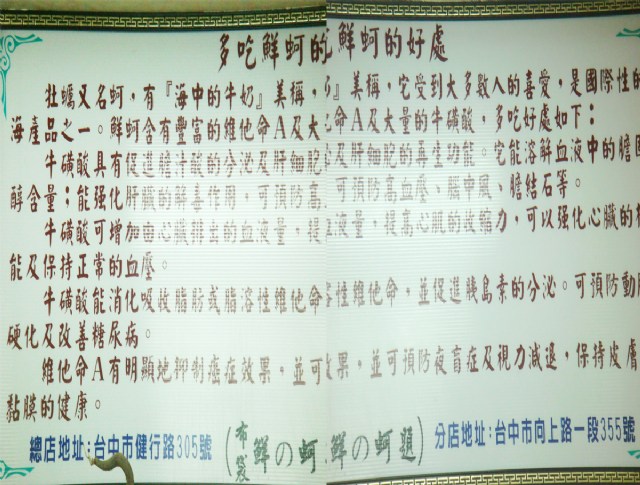 多吃鮮蚵的 鮮蚵的好處
牡蠣又名蚵，有『海中的牛奶』美稱， 』美稱，它受到大多數人的喜愛，是國際性的
海產品之一。鮮蚵含有豐富的維他命A及大 命A及大量的牛磺酸，多吃好處如下：
牛磺酸具有促進膽汁酸的分泌及肝細胞 及肝細胞的再生功能。它能溶解血液中的膽固
醇含量；能強化肝臟的解毒作用，可預防高 可預防高血壓、腦中風、膽結石等。
牛磺酸可增加由心臟推出的血液量，提 血液量，提高心肌的收縮力，可以強化心臟的
能及保持正常的血壓。
牛磺酸能消化吸收脂肪或脂溶性維他命 溶性維他命，並促進胰島素的分泌。可預防動
硬化及改善糖尿病。
維他命A有明顯地抑制癌症效果，並可 效果，並可預防夜盲症及視力減退，保持皮膚
黏膜的健康。
總店地址：台中市健行路305號 (布袋 鮮の蚵 鮮の蚵題) 分店地址：台中市向上路一段355號